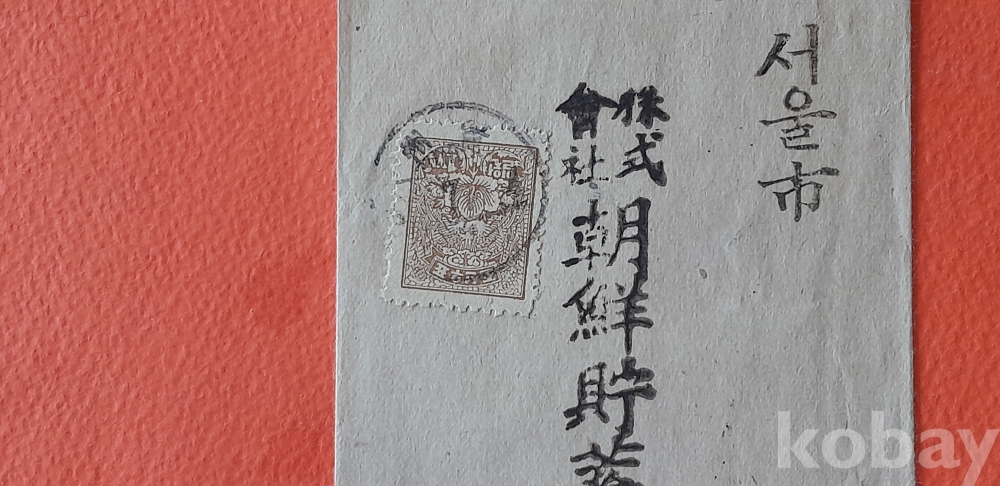 서울市
株式
會社
朝鮮貯蓄
kobay